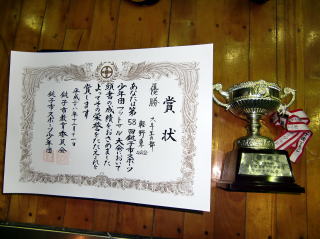 賞状
優勝
六年生の部
あなたは第58回銚子市スポーツ
少年団フットサル大会において
頭書の成績をおさめました
よってその栄誉をたたえこれを
賞します
平成二十八年十二月十一日
銚子市教育委員会
銚子市スポーツ少年団